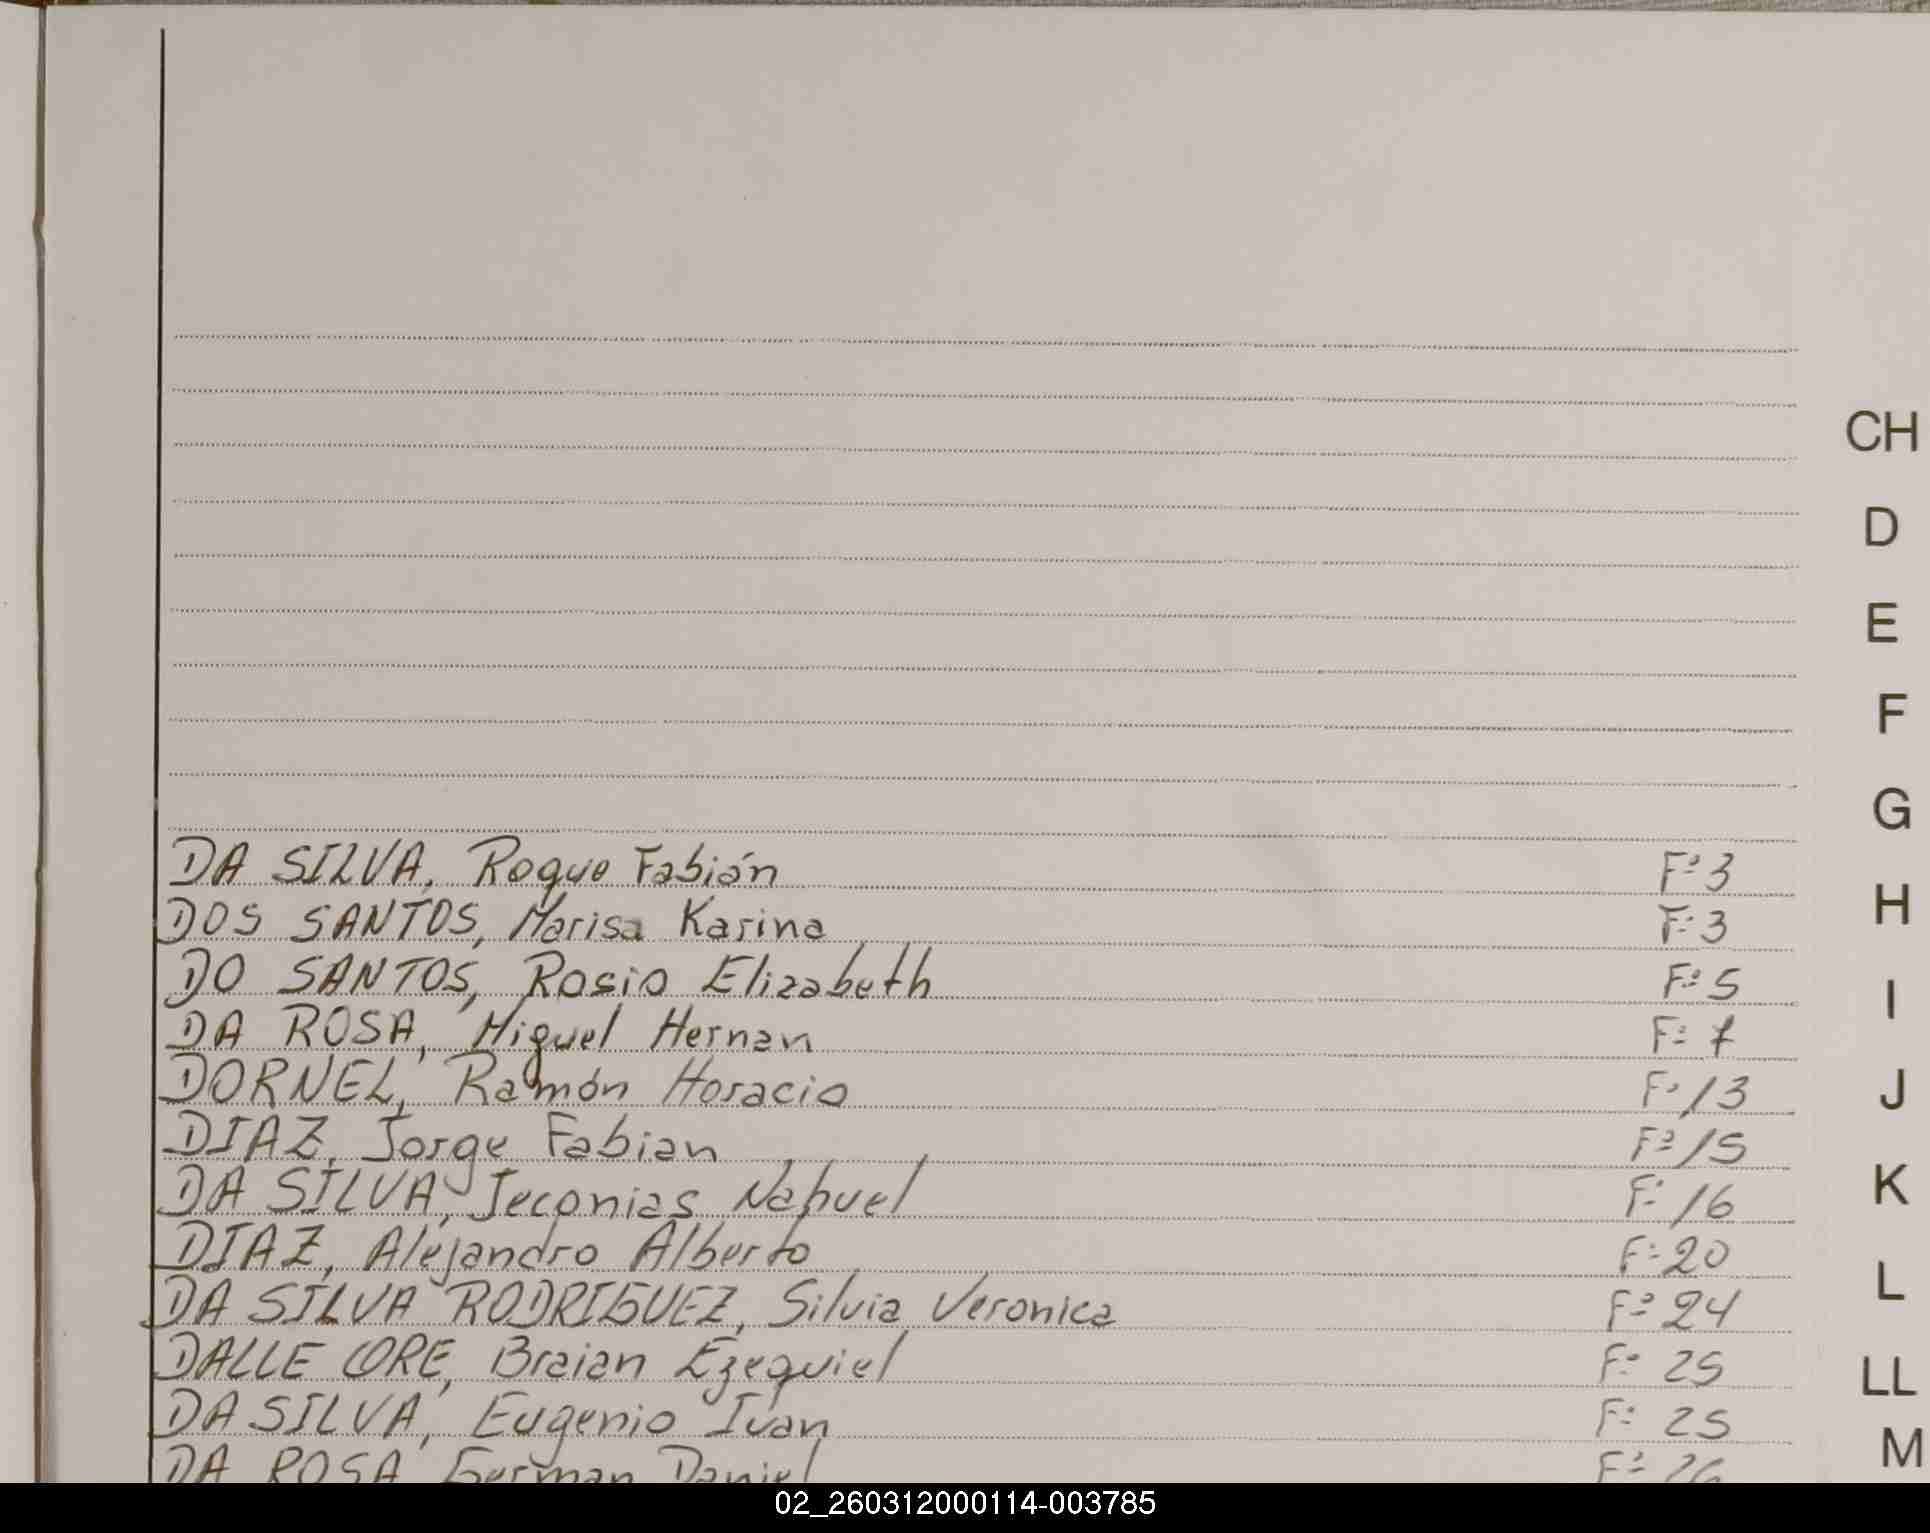 CH
D
E
F
G
DA SILVA, Roque Fabián F:3
DOS SANTOS, Marisa Karina F:3
H
DO SANTOS, Rosio Elizabeth F:5
I
DA ROSA, Miguel Hernan F:7
DORNEL, Ramón Horacio F:13
J
DIAZ, Jorge Fabian F:15
DA SILVA, Jeconias Nahuel F:16
K
DIAZ, Alejandro Alberto F:20
L
DA SILVA RODRIGUEZ, Silvia Veronica F:24
DALLE CORE, Braian Ezequiel F:25
LL
DA SILVA, Eugenio Ivan F:25
M
DA ROSA, German Daniel F:26
02_260312000114-003785